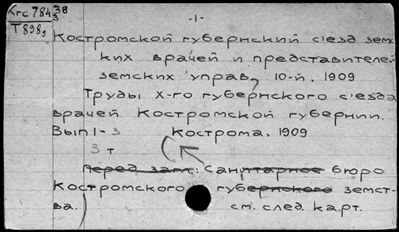 Кгс 784 38
3
Т 898,
-1-
Костромской губернский с'езд зем-
ких врачей и представителей
земских управ, 10-й. 1909
Труды Х-го губернского с'езда
врачей Костромской губернии.
Вып 1-3 Кострома, 1909
3 т
Перед загл: Санитарное бюро
Костромского губернского земст-
ва. см. след. карт.